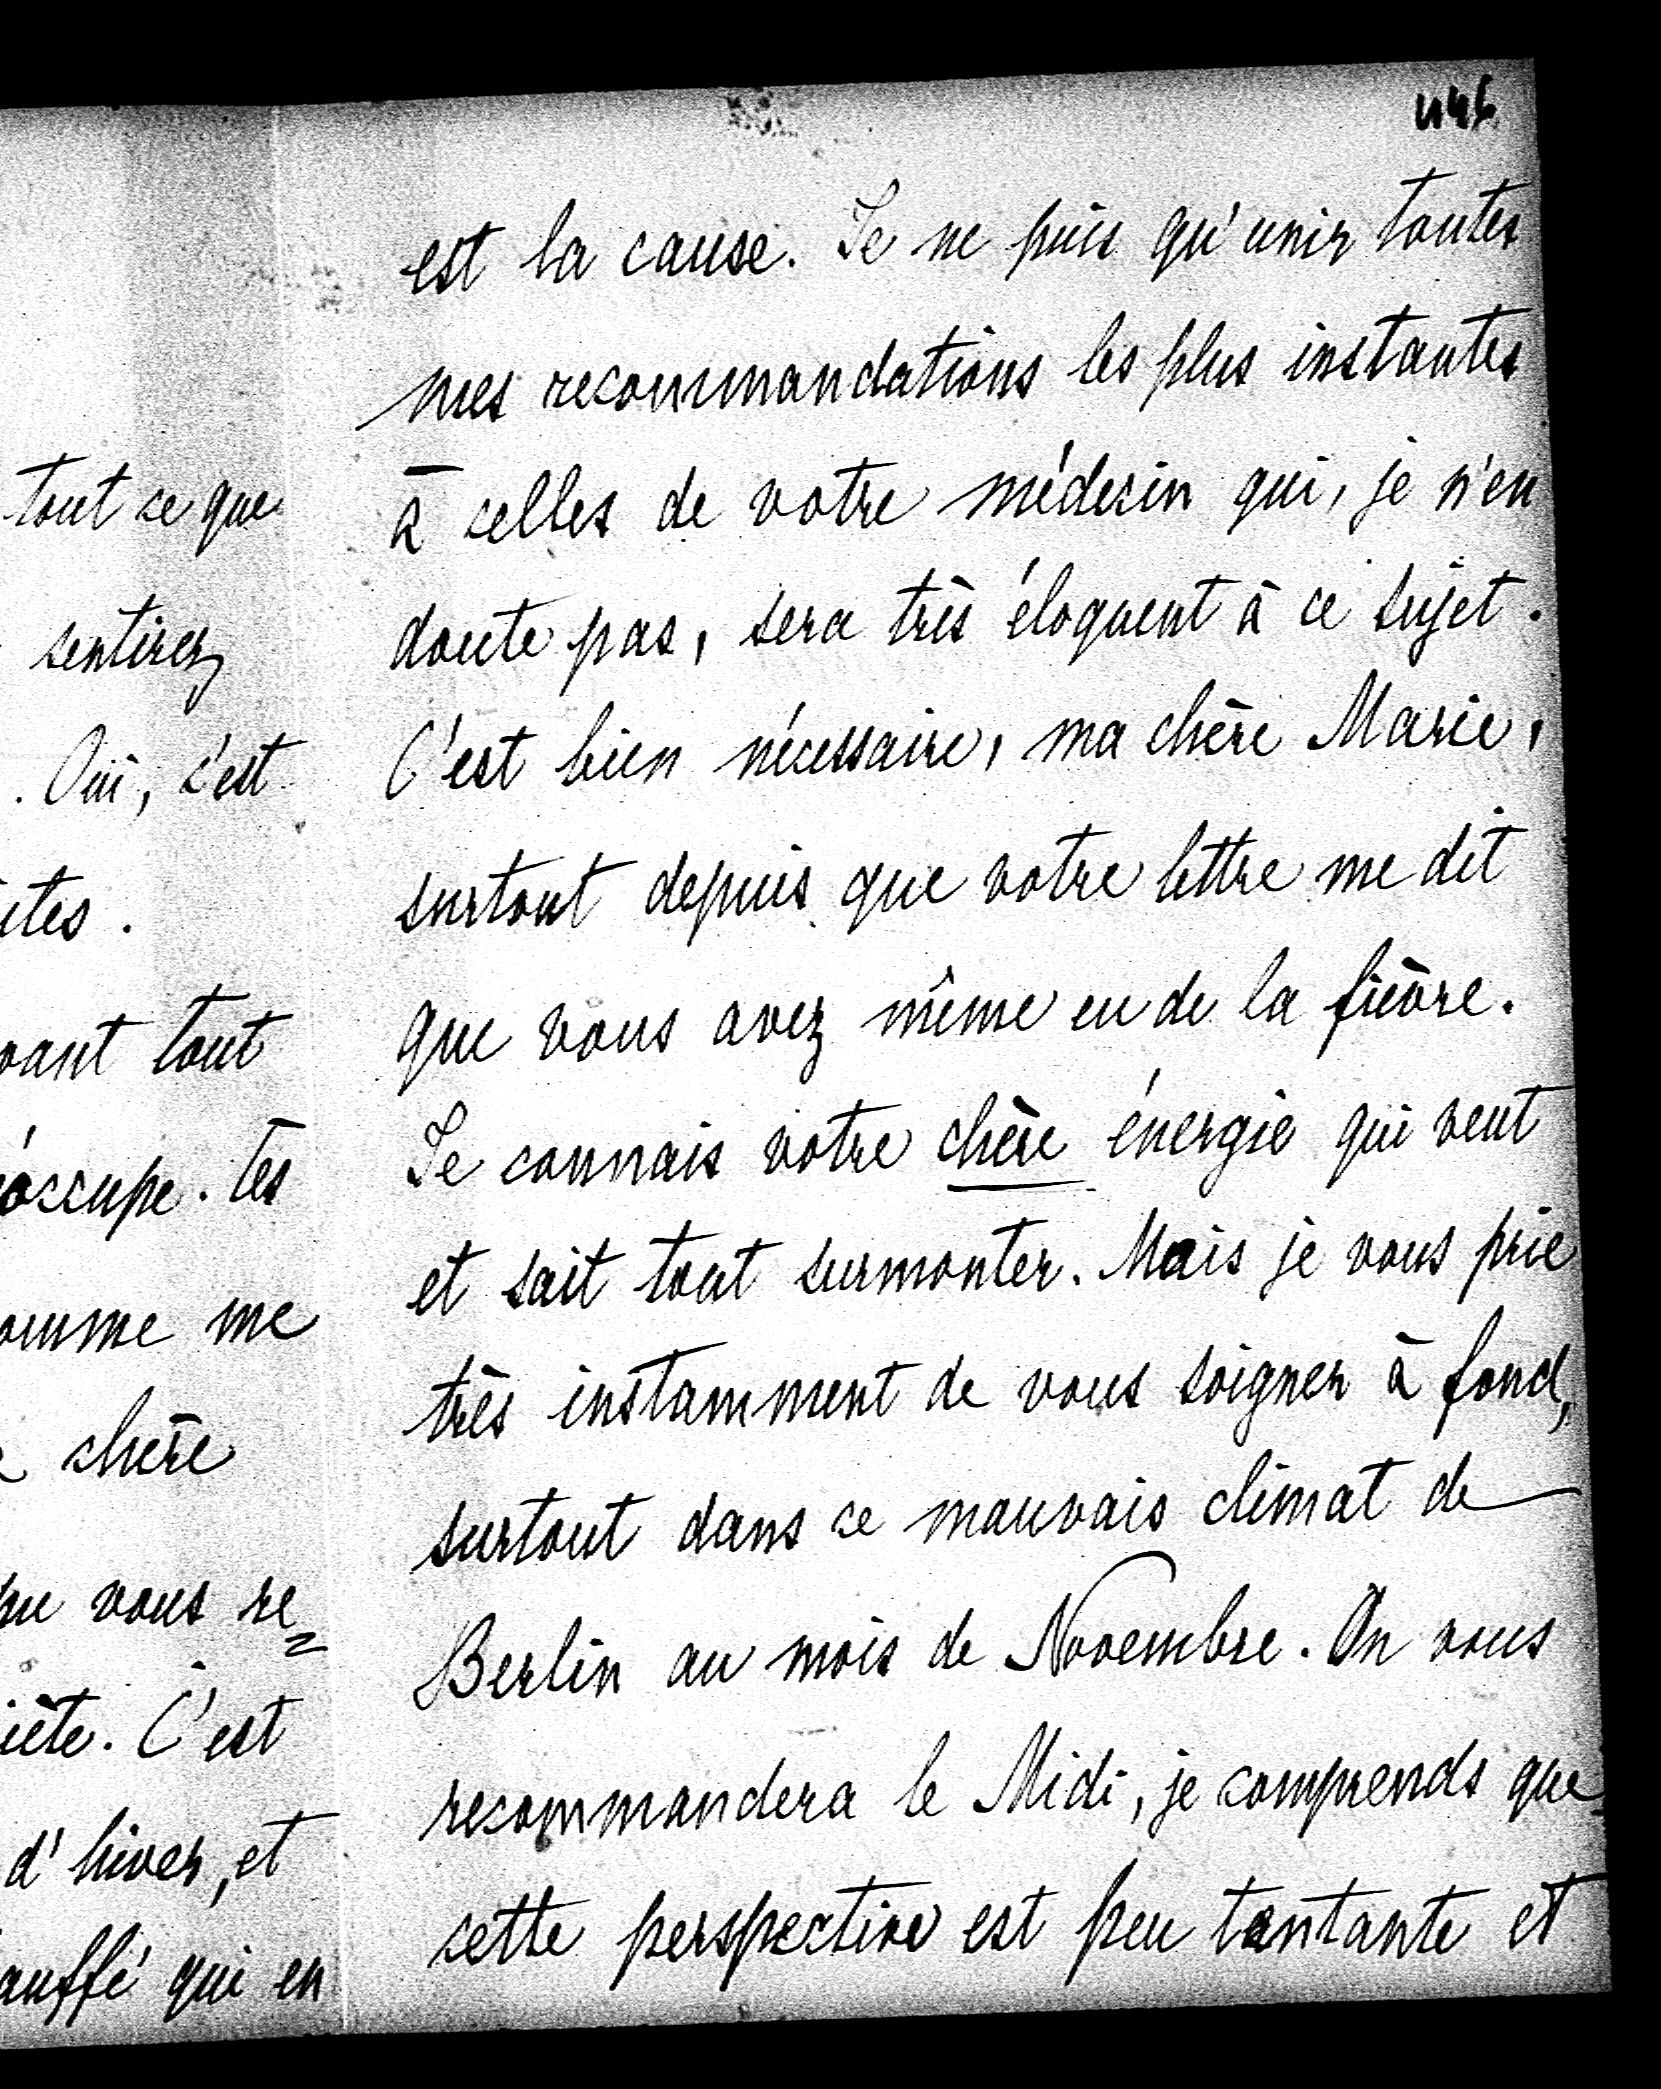 tout ce que
sentirez
. Oui, c'est
tout
occupe. Les
me
chère
vous re=
C'est
d'hiver, et
qui en
est la cause. Je ne puis qu'unir toutes
mes recommandations les plus instantes
à celles de votre médecin qui, je n'en
doute pas, sera très éloquent à ce sujet.
C'est bien nécessaire, ma chère Marie,
surtout depuis que votre lettre me dit
que vous avez même eu de la fièvre.
Je connais votre chère énergie qui veut
et sait tout surmonter. Mais je vous prie
très instamment de vous soigner à fond,
surtout dans ce mauvais climat de
Berlin au mois de Novembre. On vous
recommandera le Midi, je comprends que
cette perspective est peu tentante et